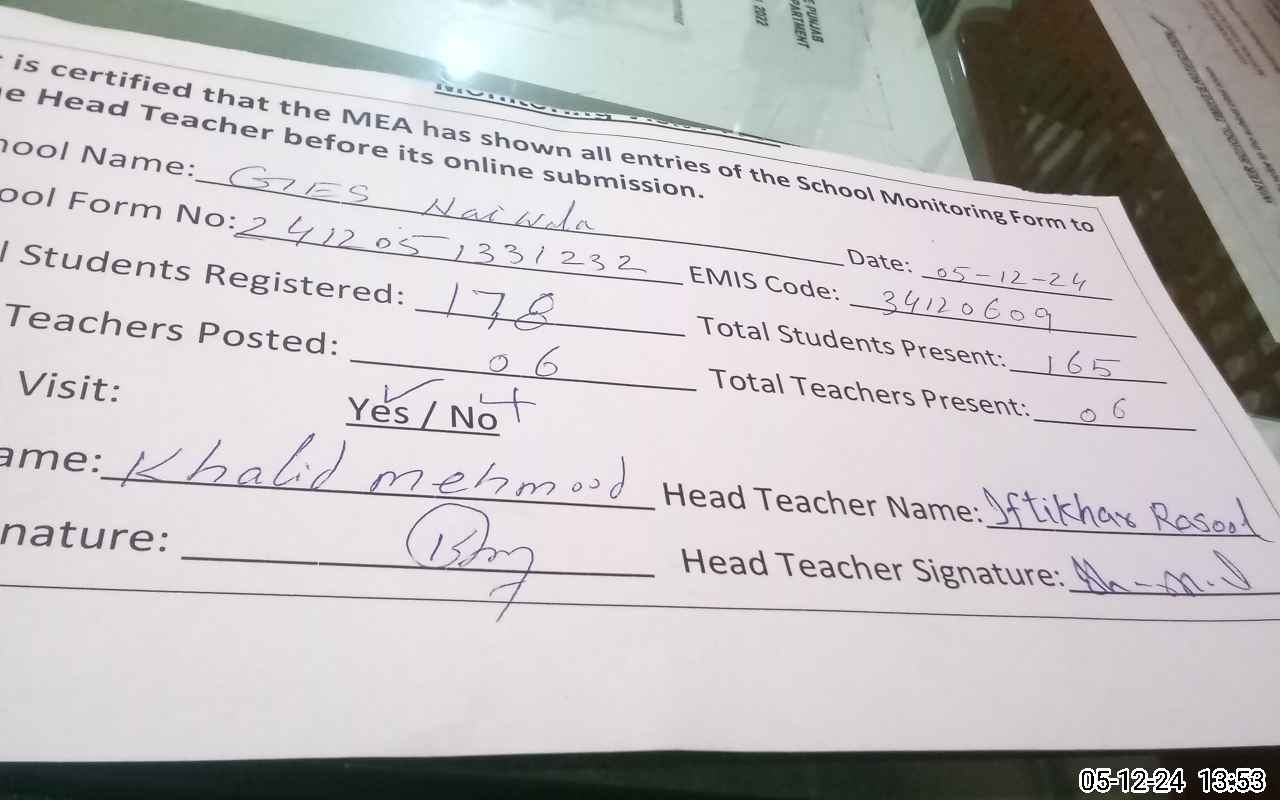 PUNJAB
PARTMENT
2022
is certified that the MEA has shown all entries of the School Monitoring Form to
e Head Teacher before its online submission.
hool Name: GES Naiwala Date: 05-12-24
ool Form No: 2412051331232 EMIS Code: 34120609
l Students Registered: 178 Total Students Present: 165
Teachers Posted: 06 Total Teachers Present: 06
Visit: Yes / No
ame: Khalid mehmood Head Teacher Name: Iftikhar Rasool
nature: Head Teacher Signature:
05-12-24 13:53